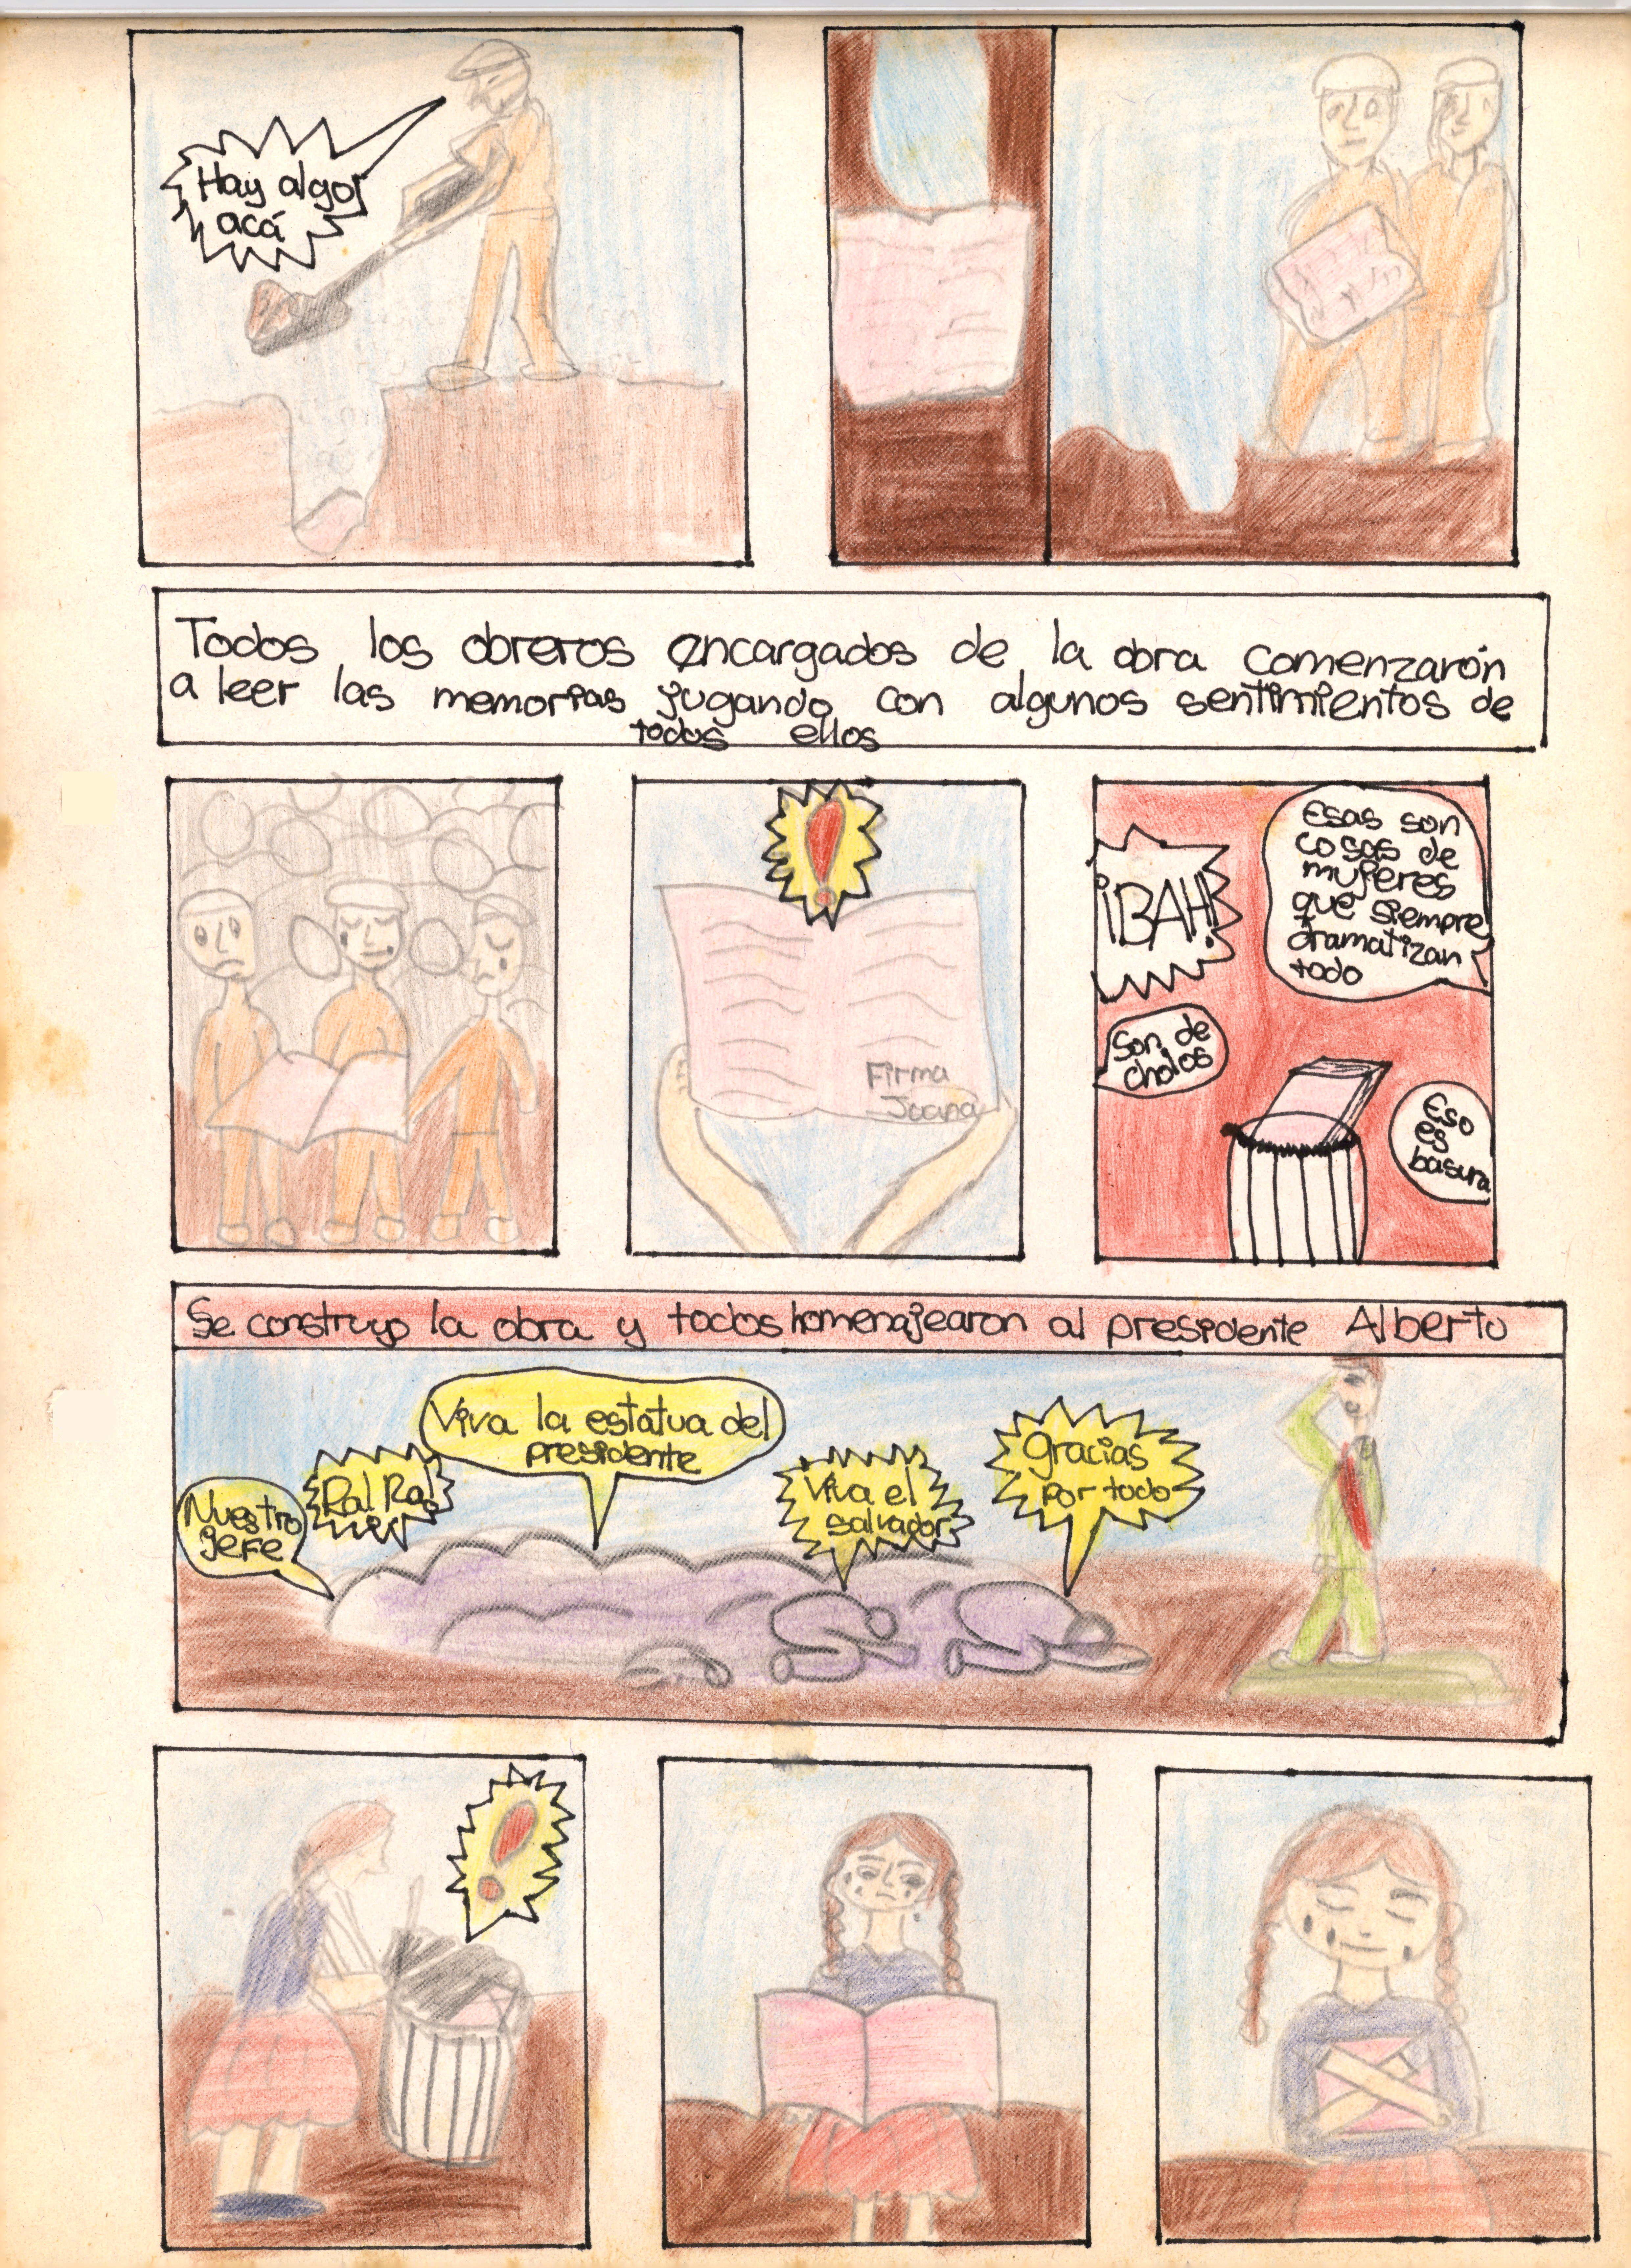 Hay algo
acá
Todos los obreros encargados de la obra comenzarón
a leer las memorias jugando con algunos sentimientos de
todos ellos
Firma
Juana
¡BAH!
Esas son
cosas de
mujeres
que siempre
dramatizan
todo
Son de
cholos
Eso
es
basura
Se construyo la obra y todos homenajearon al presidente Alberto
Nuestro
jefe
Ra! Ra!
Viva la estatua del
presidente
Viva el
salvador
gracias
por todo